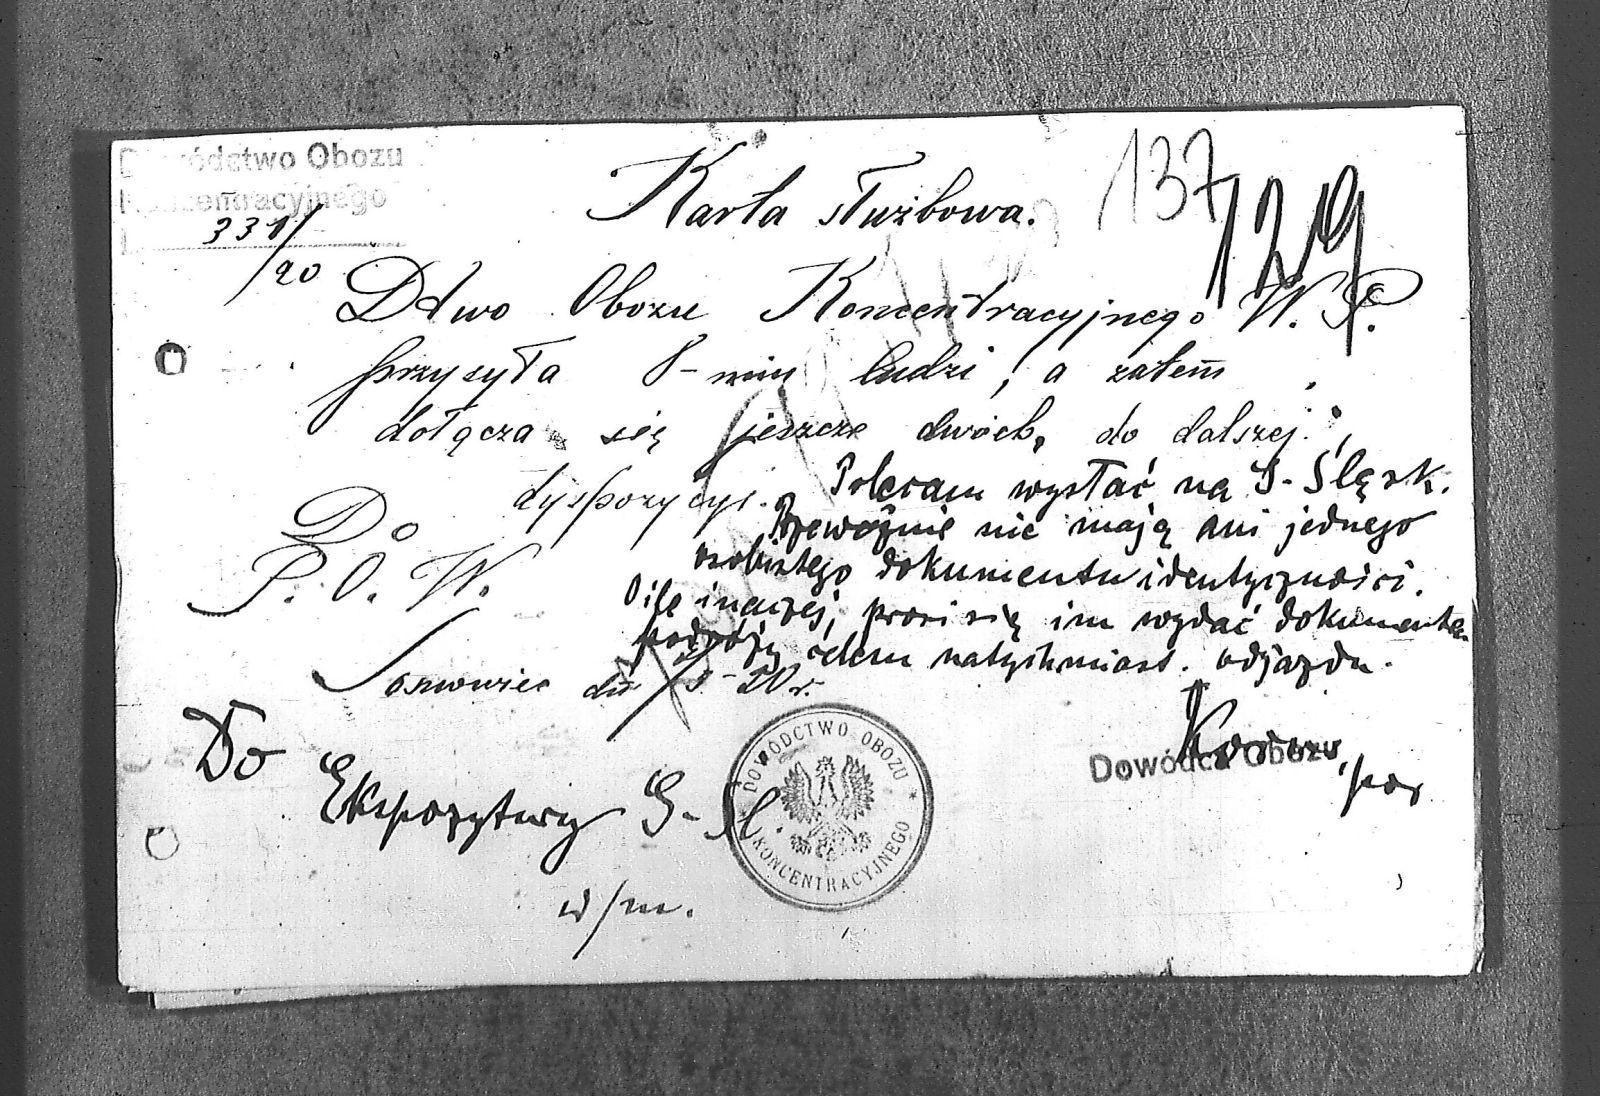 Dowództwo Obozu
Koncentracyjnego
331/20
137
129
Karta służbowa.
Dtwo Obozu Koncentracyjnego W. P.
przysyła 8-miu ludzi, a zatem
dołącza się jeszcze dwóch, do dalszej
dyspozycyi.
Do
P. O. W.
Sosnowiec dn
20 r.
Polecam wysłać na G-Śląsk.
Przeważnie nie mają ani jednego
osobistego dokumentu identyczności.
O ile inaczej, prosi się im wydać dokumenta
podróży celem natychmiast. odjazdu.
Dowódca Obozu
por
Do
Ekspozytury G-Śl.
w/m.
DOWÓDCTWO OBOZU * KONCENTRACYJNEGO *